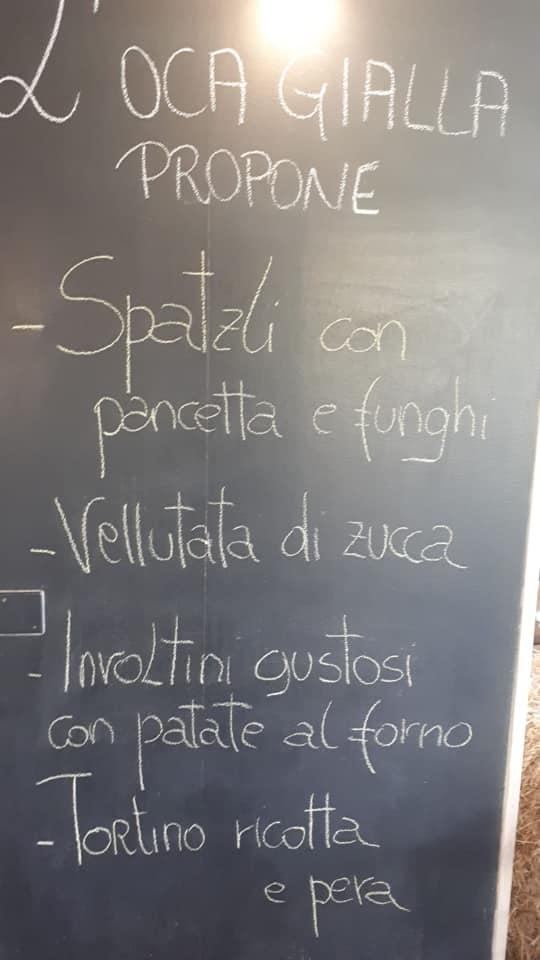 L'OCA GIALLA
PROPONE
- Spatzli con
pancetta e funghi
- Vellutata di zucca
- Involtini gustosi
con patate al forno
- Tortino ricotta
e pera